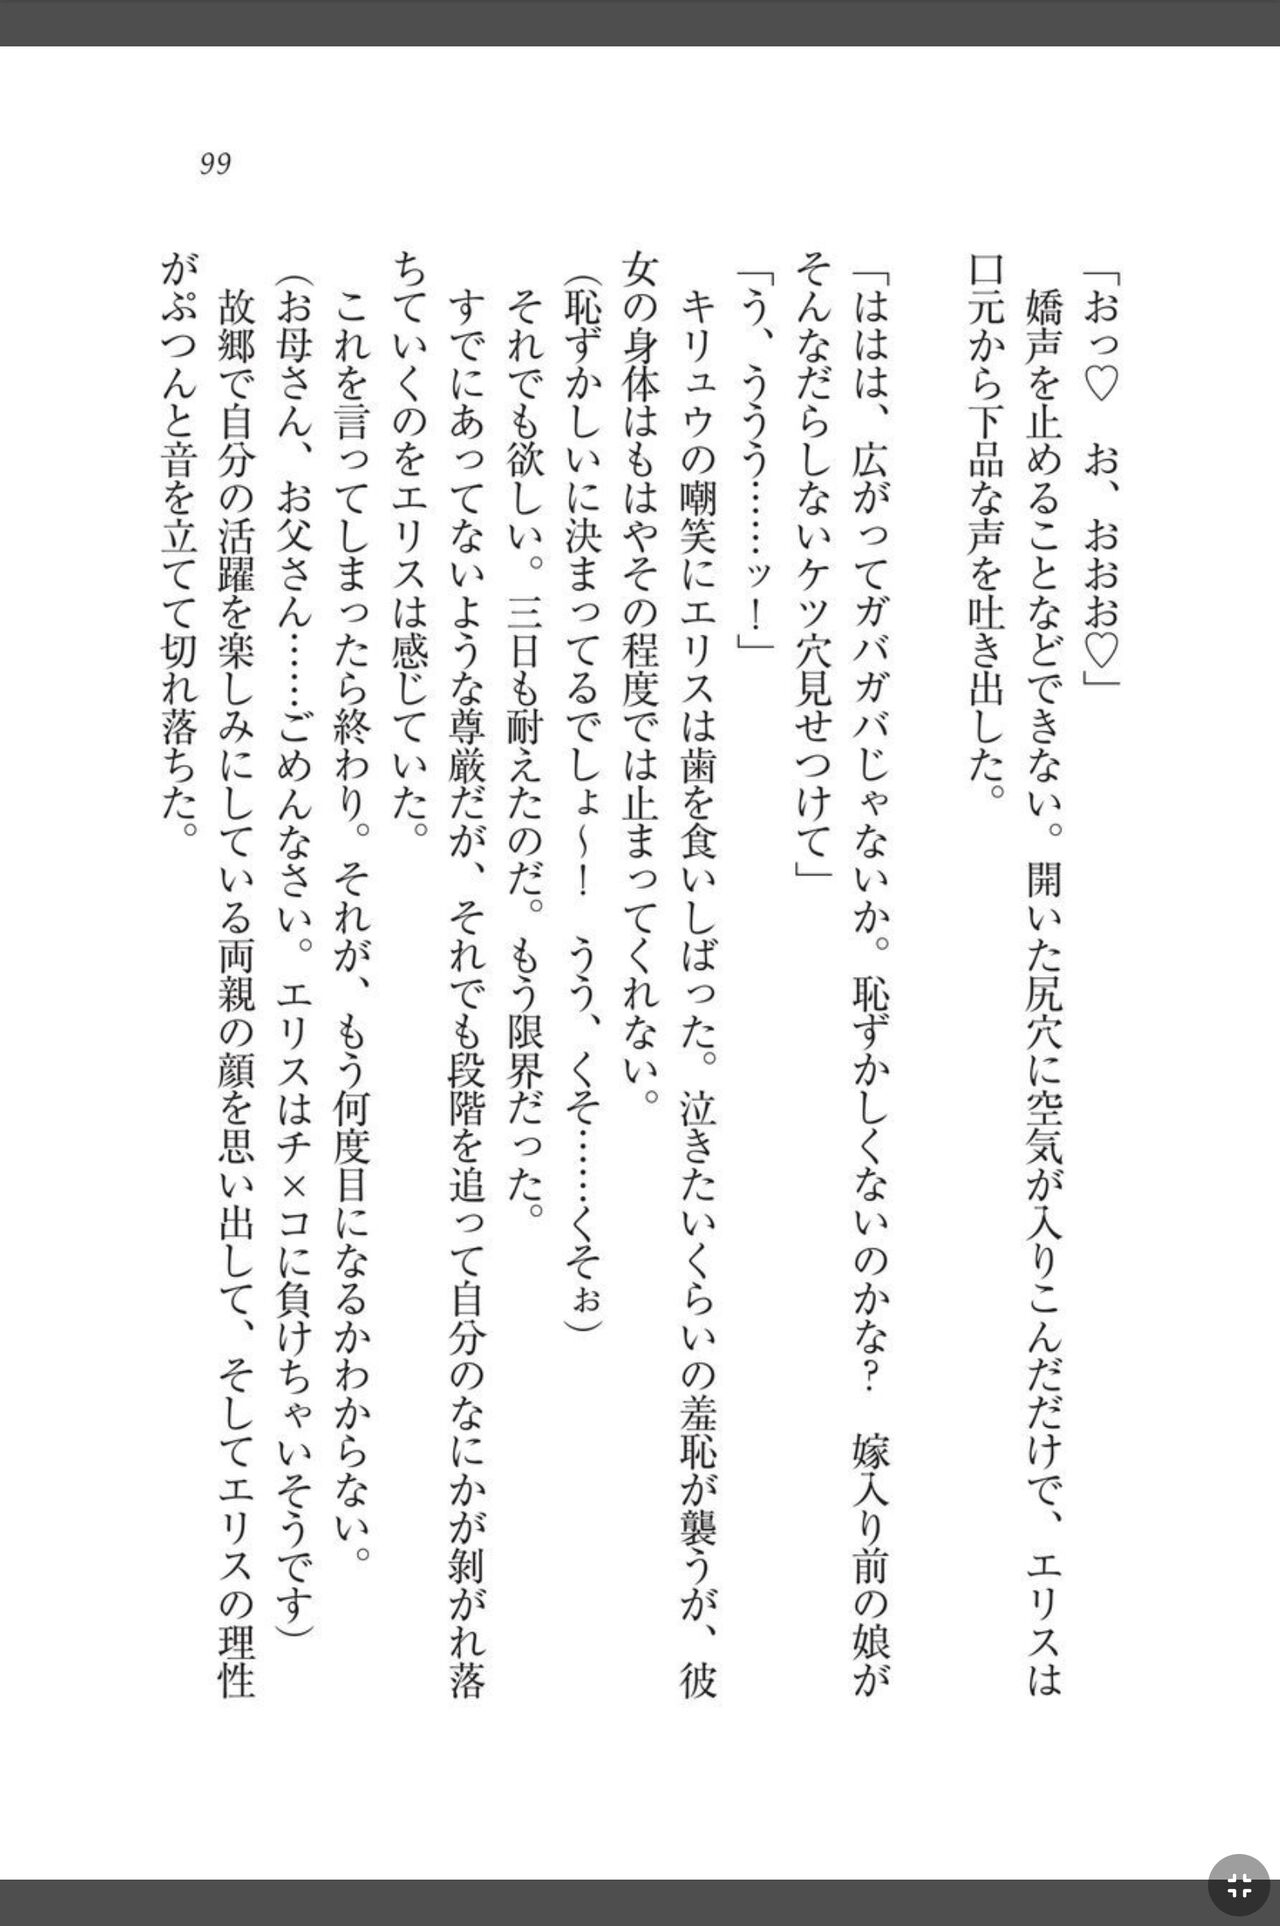 99
「おっ♡　お、おおお♡」
　嬌声を止めることなどできない。開いた尻穴に空気が入りこんだだけで、エリスは
口元から下品な声を吐き出した。
「ははは、広がってガバガバじゃないか。恥ずかしくないのかな？　嫁入り前の娘が
そんなだらしないケツ穴見せつけて」
「う、ううう……ッ！」
　キリュウの嘲笑にエリスは歯を食いしばった。泣きたいくらいの羞恥が襲うが、彼
女の身体はもはやその程度では止まってくれない。
（恥ずかしいに決まってるでしょ～！　うう、くそ……くそぉ）
　それでも欲しい。三日も耐えたのだ。もう限界だった。
　すでにあってないような尊厳だが、それでも段階を追って自分のなにかが剝がれ落
ちていくのをエリスは感じていた。
　これを言ってしまったら終わり。それが、もう何度目になるかわからない。
（お母さん、お父さん……ごめんなさい。エリスはチ×コに負けちゃいそうです）
　故郷で自分の活躍を楽しみにしている両親の顔を思い出して、そしてエリスの理性
がぷつんと音を立てて切れ落ちた。